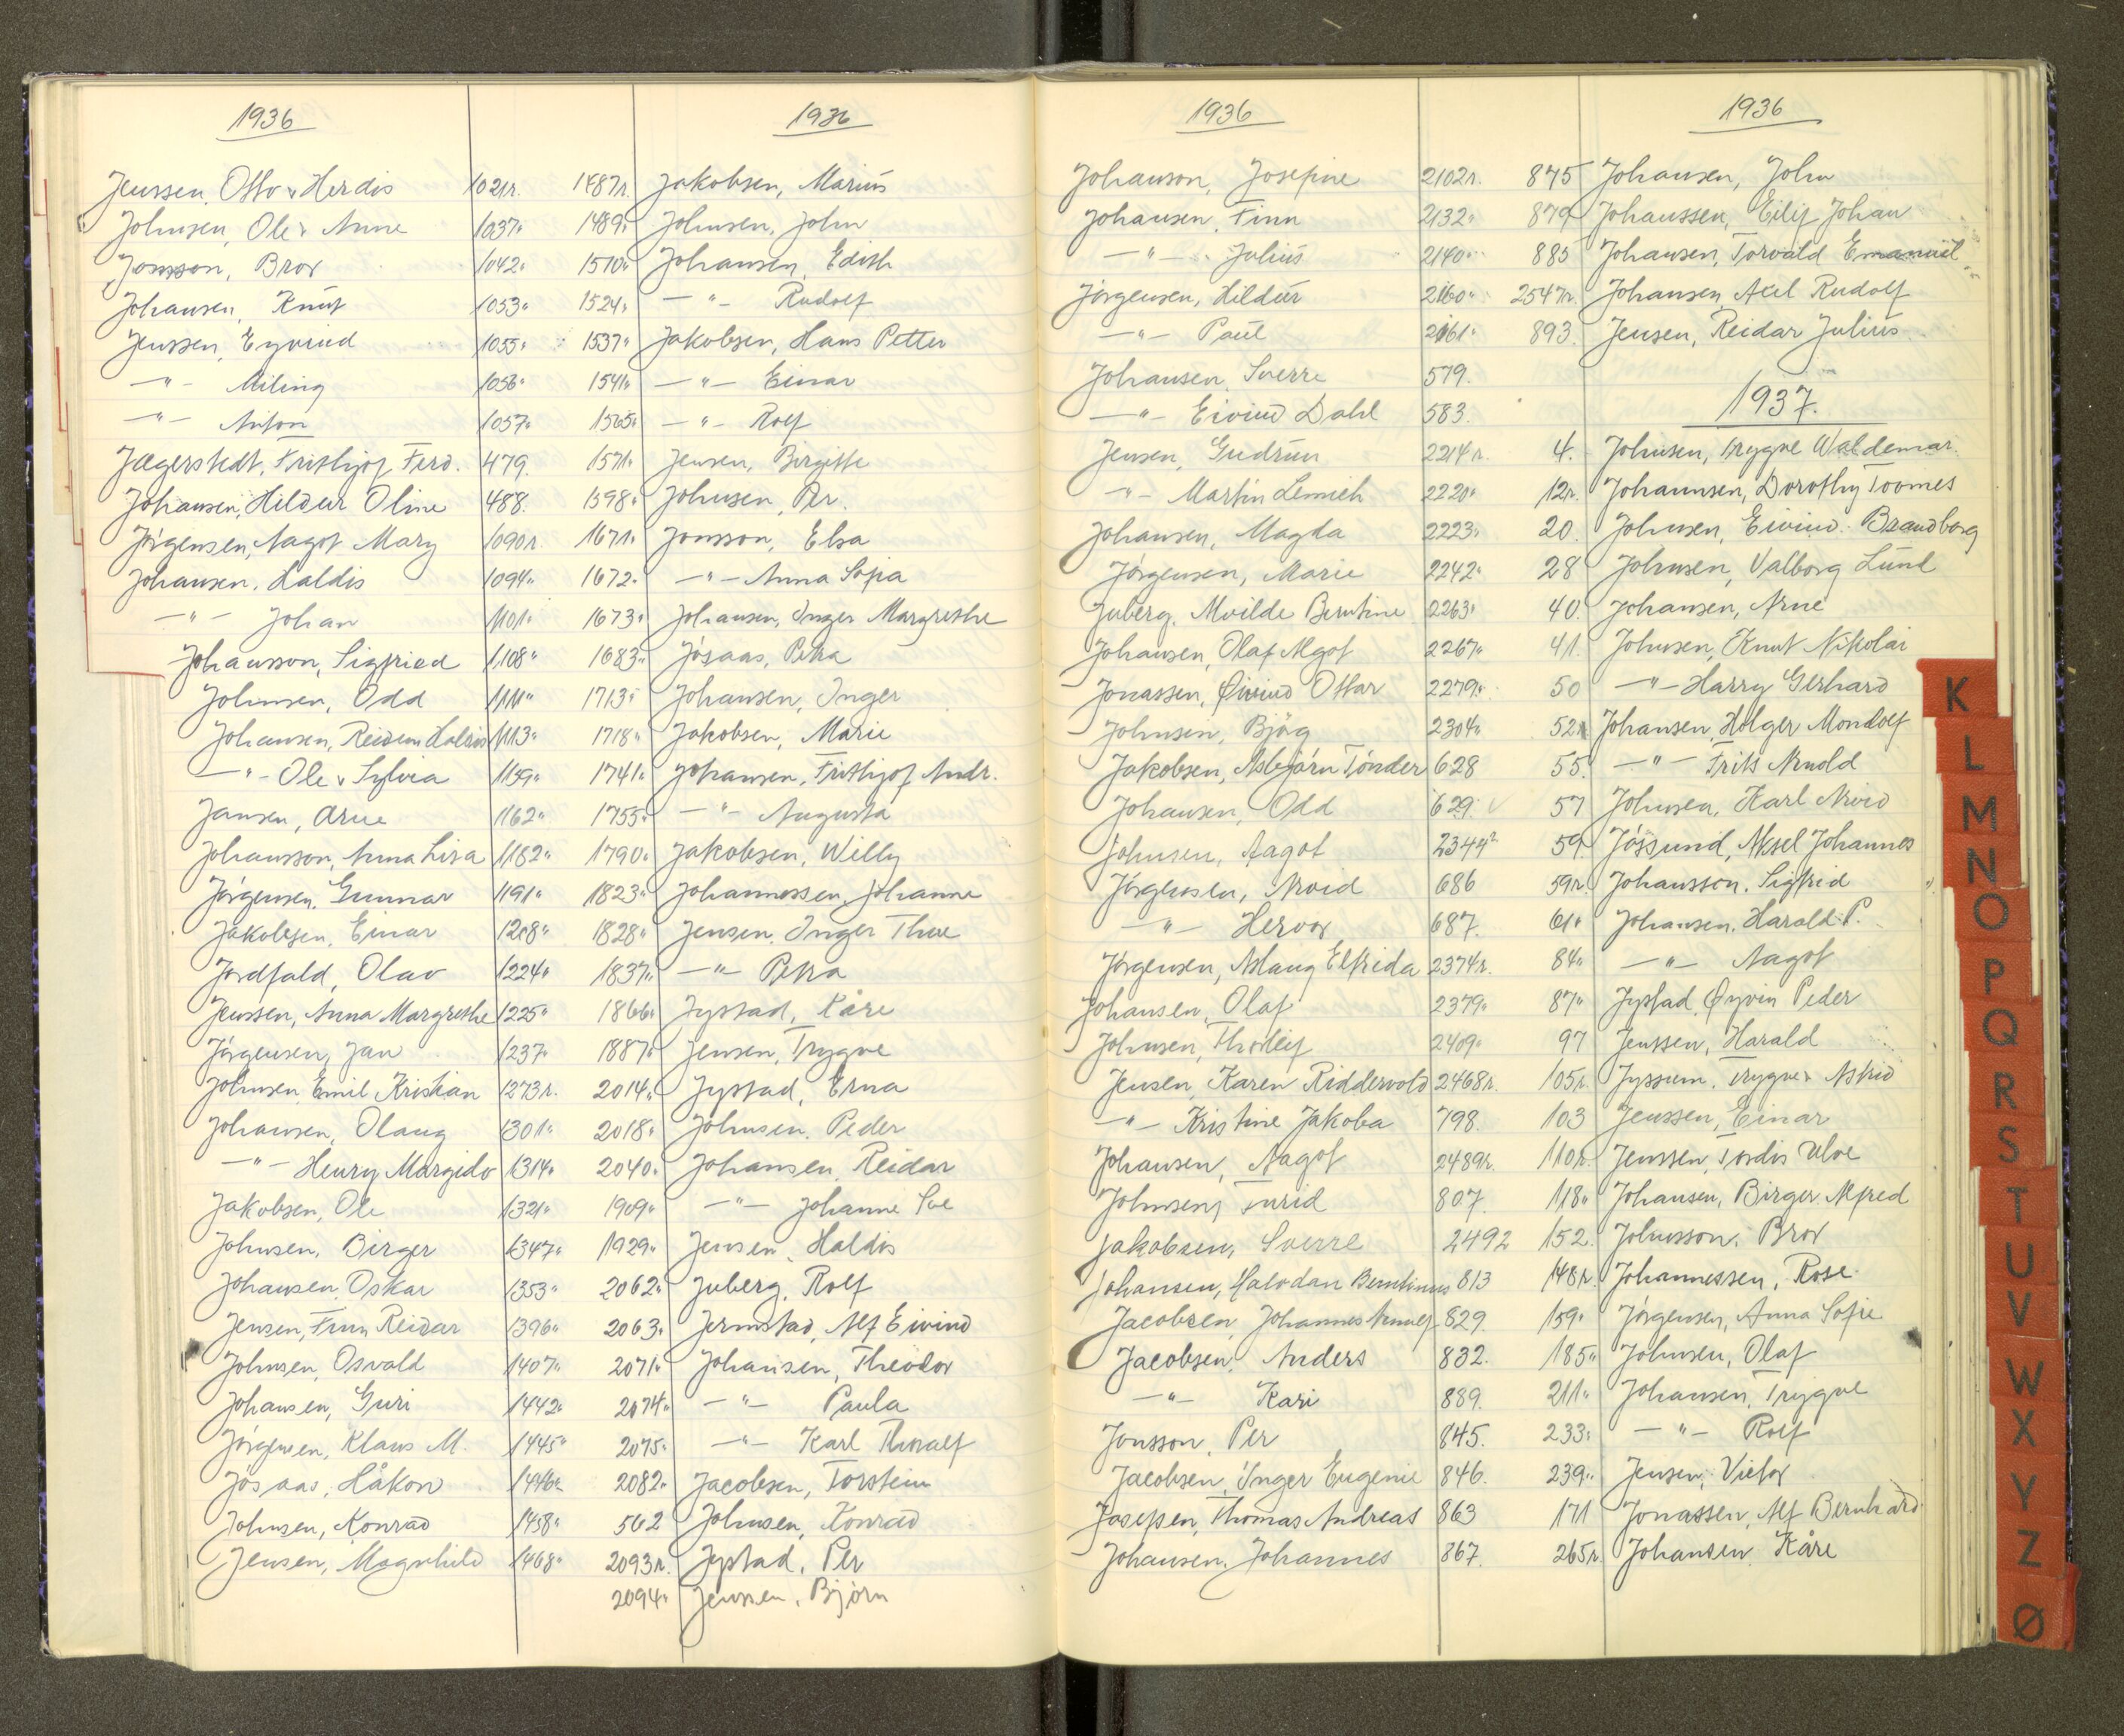 1936
Jenssen, Otto & Herdis 1021r.
Johnsen, Ole & Anne 1037"
Jonsson, Bror 1042"
Johansen, Knut 1053"
Jenssen, Eyvind 1055"
—"— Miling 1056"
—"— Anton 1057"
Jægerstedt, Frithjof Ferd. 479
Johansen, Hildur Oline 488.
Jörgensen, Aagot Mary 1090r.
Johansen, Haldis 1094"
—"— Johan 1101"
Johansson, Sigfried 1108"
Johnsen, Odd 1111"
Johansen, Reidun Haldis 1113"
—"— Ole & Sylvia 1159"
Jansen, Arne 1162"
Johansson, Anna Lisa 1182"
Jörgensen, Gunnar 1191"
Jakobsen, Einar 1208"
Jordfald, Olav 1224"
Jenssen, Anna Margrethe 1225"
Jörgensen, Jan 1237"
Johnsen, Emil Kristian 1273r.
Johansen, Olaug 1301"
—"— Henry Margido 1314"
Jakobsen, Ole 1321"
Johnsen, Birger 1347"
Johansen, Oskar 1353"
Jensen, Finn Reidar 1396"
Johnsen, Osvald 1407"
Johansen, Guri 1442"
Jörgensen, Klaus M. 1445"
Jösaas, Håkon 1446"
Johnsen, Konrad 1458"
Jensen, Magnhild 1468"
1936
1487r. Jakobsen, Marius
1489" Johnsen, John
1510" Johansen, Edith
1524" —"— Rudolf
1537" Jakobsen, Hans Petter
1541" —"— Einar
1565" —"— Rolf
1571" Jensen, Birgitte
1598" Johnsen, Per.
1671" Jonsson, Elsa
1672" —"— Anna Sofia
1673" Johansen, Inger Margrethe
1683" Jösaas, Petra
1713" Johansen, Inger
1718" Jakobsen, Marie
1741" Johansen, Frithjof Andr.
1755" —"— Augusta
1790" Jakobsen, Willy
1823" Johannessen, Johanne
1828" Jensen, Inger Thue
1837" —"— Petra
1866" Jystad, Kåre
1887" Jensen, Trygve
2014" Jystad, Erna
2018" Johnsen, Peder
2040" Johansen, Reidar
1909" —"— Johanne
1929" Jensen, Haldis
2062" Juberg, Rolf
2063" Jermstad, Alf Eivind
2071" Johansen, Theodor
2074" —"— Paula
2075" —"— Karl Thoralf
2082" Jacobsen, Torstein
562 Johnsen, Konrad
2093r. Jystad, Per
2094" Jenssen, Björn
1936
Johanson, Josefine 2102r.
Johansen, Finn 2132"
—"— Julius 2140"
Jörgensen, Hildur 2160"
—"— Paul 2161"
Johansen, Sverre 579.
—"— Eivind Dahl 583.
Jensen, Gudrun 2214r.
—"— Martin Lemich 2220"
Johansen, Magda 2223"
Jörgensen, Marie 2242"
Juberg, Mvilde Berntine 2263"
Johansen, Olaf Algot 2267"
Jonassen, Øivind Ottar 2279"
Johnsen, Bjög 2304"
Jakobsen, Asbjörn Tönder 628
Johansen, Odd 629.
Johnsen, Aagot 2344r
Jörgensen, Arvid 686
—"— Hervor 687.
Jörgensen, Aslaug Elfrida 2374r.
Johansen, Olaf 2379"
Johnsen, Thorleif 2409"
Jensen, Karen Riddervold 2468r.
—"— Kristine Jakoba 798.
Johansen, Aagot 2489r.
Johnsen, Turid 807.
Jakobsen, Sverre 2492
Johansen, Halvdan Berntinus 813
Jacobsen, Johannes Arnulf 829.
Jacobsen, Anders 832.
—"— Kari 889.
Jonsson, Per 845.
Jacobsen, Inger Eugenie 846.
Josefsen, Thomas Andreas 863
Johansen, Johannes 867.
1936
875 Johansen, John
879 Johanssen, Eilif Johan
885 Johansen, Torvald Emanuel
2547r. Johansen, Axel Rudolf
893. Jensen, Reidar Julius
1937.
4. Johnsen, Trygve Waldemar.
12r. Johannsen, Dorothy Toomes
20. Johnsen, Eivind Brandborg
28 Johnsen, Valborg Lund
40. Johansen, Arne
41. Johnsen, Knut Nikolai
50 —"— Harry Gerhard
52r Johansen, Holger Mondolf
55. —"— Frits Arnold
57 Johnsen, Karl Arvid
59. Jössund, Aksel Johannes
59r Johansson, Sigfrid
61" Johansen, Harald P.
84" —"— Aagot
87" Jystad, Øyvin Peder
97 Jenssen, Harald
105r. Jyssum, Trygve & Astrid
103 Jenssen, Einar
110r. Jenssen, Tordis Ulve
118" Johansen, Birger Alfred
152. Johnsson, Bror
148r. Johannessen, Rose
159" Jörgensen, Anna Sofie
185" Johnsen, Olaf
211" Johansen, Trygve
233" —"— Rolf
239" Jensen, Victor
171 Jonassen, Alf Bernhard
265r. Johansen, Kåre
K
L
M
N
O
P
Q
R
S
T
U
V
W
X
Y
Z
Ø